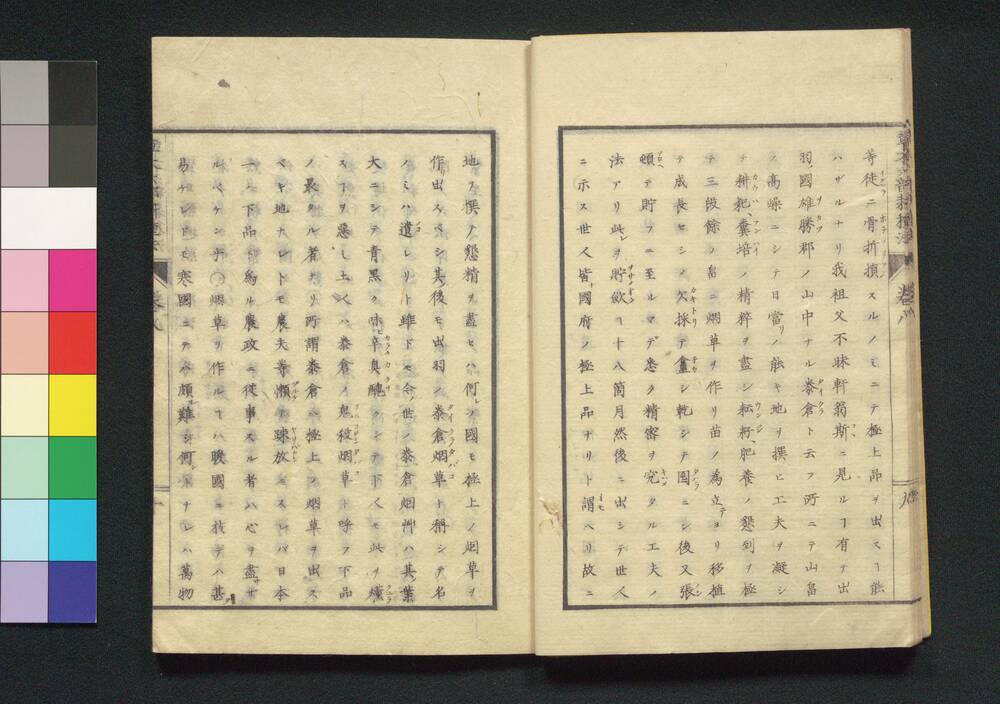 等徒ニ骨折損スルノミニテ極上品ヲ出スヿ能
ハザルナリ我祖父不昧軒翁斯ニ見ルヿ有テ出
羽國雄勝郡ノ山中ナル泰倉ト云フ所ニテ山畠
ノ高燥ニシテ日當リノ能キ地ヲ撰ビ工夫ヲ凝シ
テ耕耙、糞培ノ精粹ヲ盡シ耘耔、肥養ノ懇到ヲ極
テ三段餘ノ畠ニ烟草ヲ作リ苗ノ為立テヨリ移植
テ成長セシメ欠採テ盦シ乾シテ圈ニシ後又張
頓テ貯フニ至ルマデ悉ク精密ヲ究タル工夫ノ
法アリ此ヲ貯斂ヿ十八箇月然後ニ出シテ世人
ニ示ス世人皆國府ノ極上品ナリト謂ヘリ故ニ
地ヲ撰ノ懇精ヲ盡セハ何レノ國モ極上ノ烟草ヲ
作リ出スベシ其後モ出羽ノ泰倉烟草ト稱シテ名
ノミハ遺レリト雖ドモ今世ノ泰倉烟艸ハ其葉
大ニシテ青黑ク味ヒ辛臭醜クシテ下人モ此ヲ
スヿヲ惡シ土人ハ泰倉ノ鬼殺烟草ト呼フ下品
ノ最タル者ナリ所謂泰倉ハ極上ノ烟草ヲ出ス
ベキ地ナレトモ農夫等懶テ疎放ニスレバ日本
一ノ下品ト為ル農政ニ從事スル者ハ心ヲ盡サザ
ルベケンヤ〇烟草ヲ作ルヿハ暖國ニ於テハ甚
易ケレトモ寒國ニテハ頗難シ何レナレハ萬物
卷八